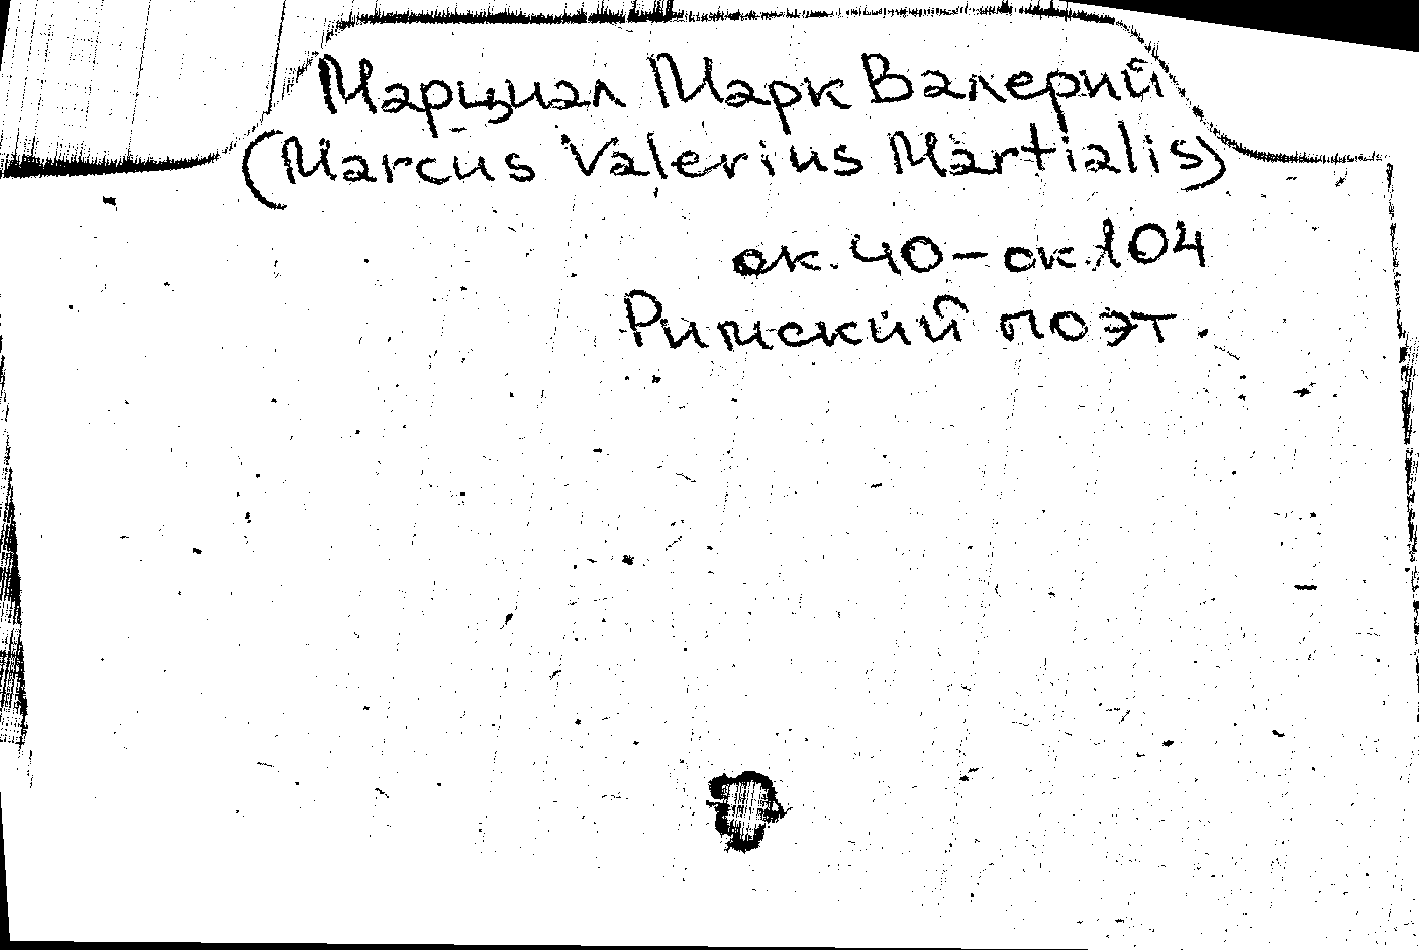 Марциал Марк Валерий
(Marcus Valerius Martialis)
ок. 40 – ок. 104
Римский поэт.